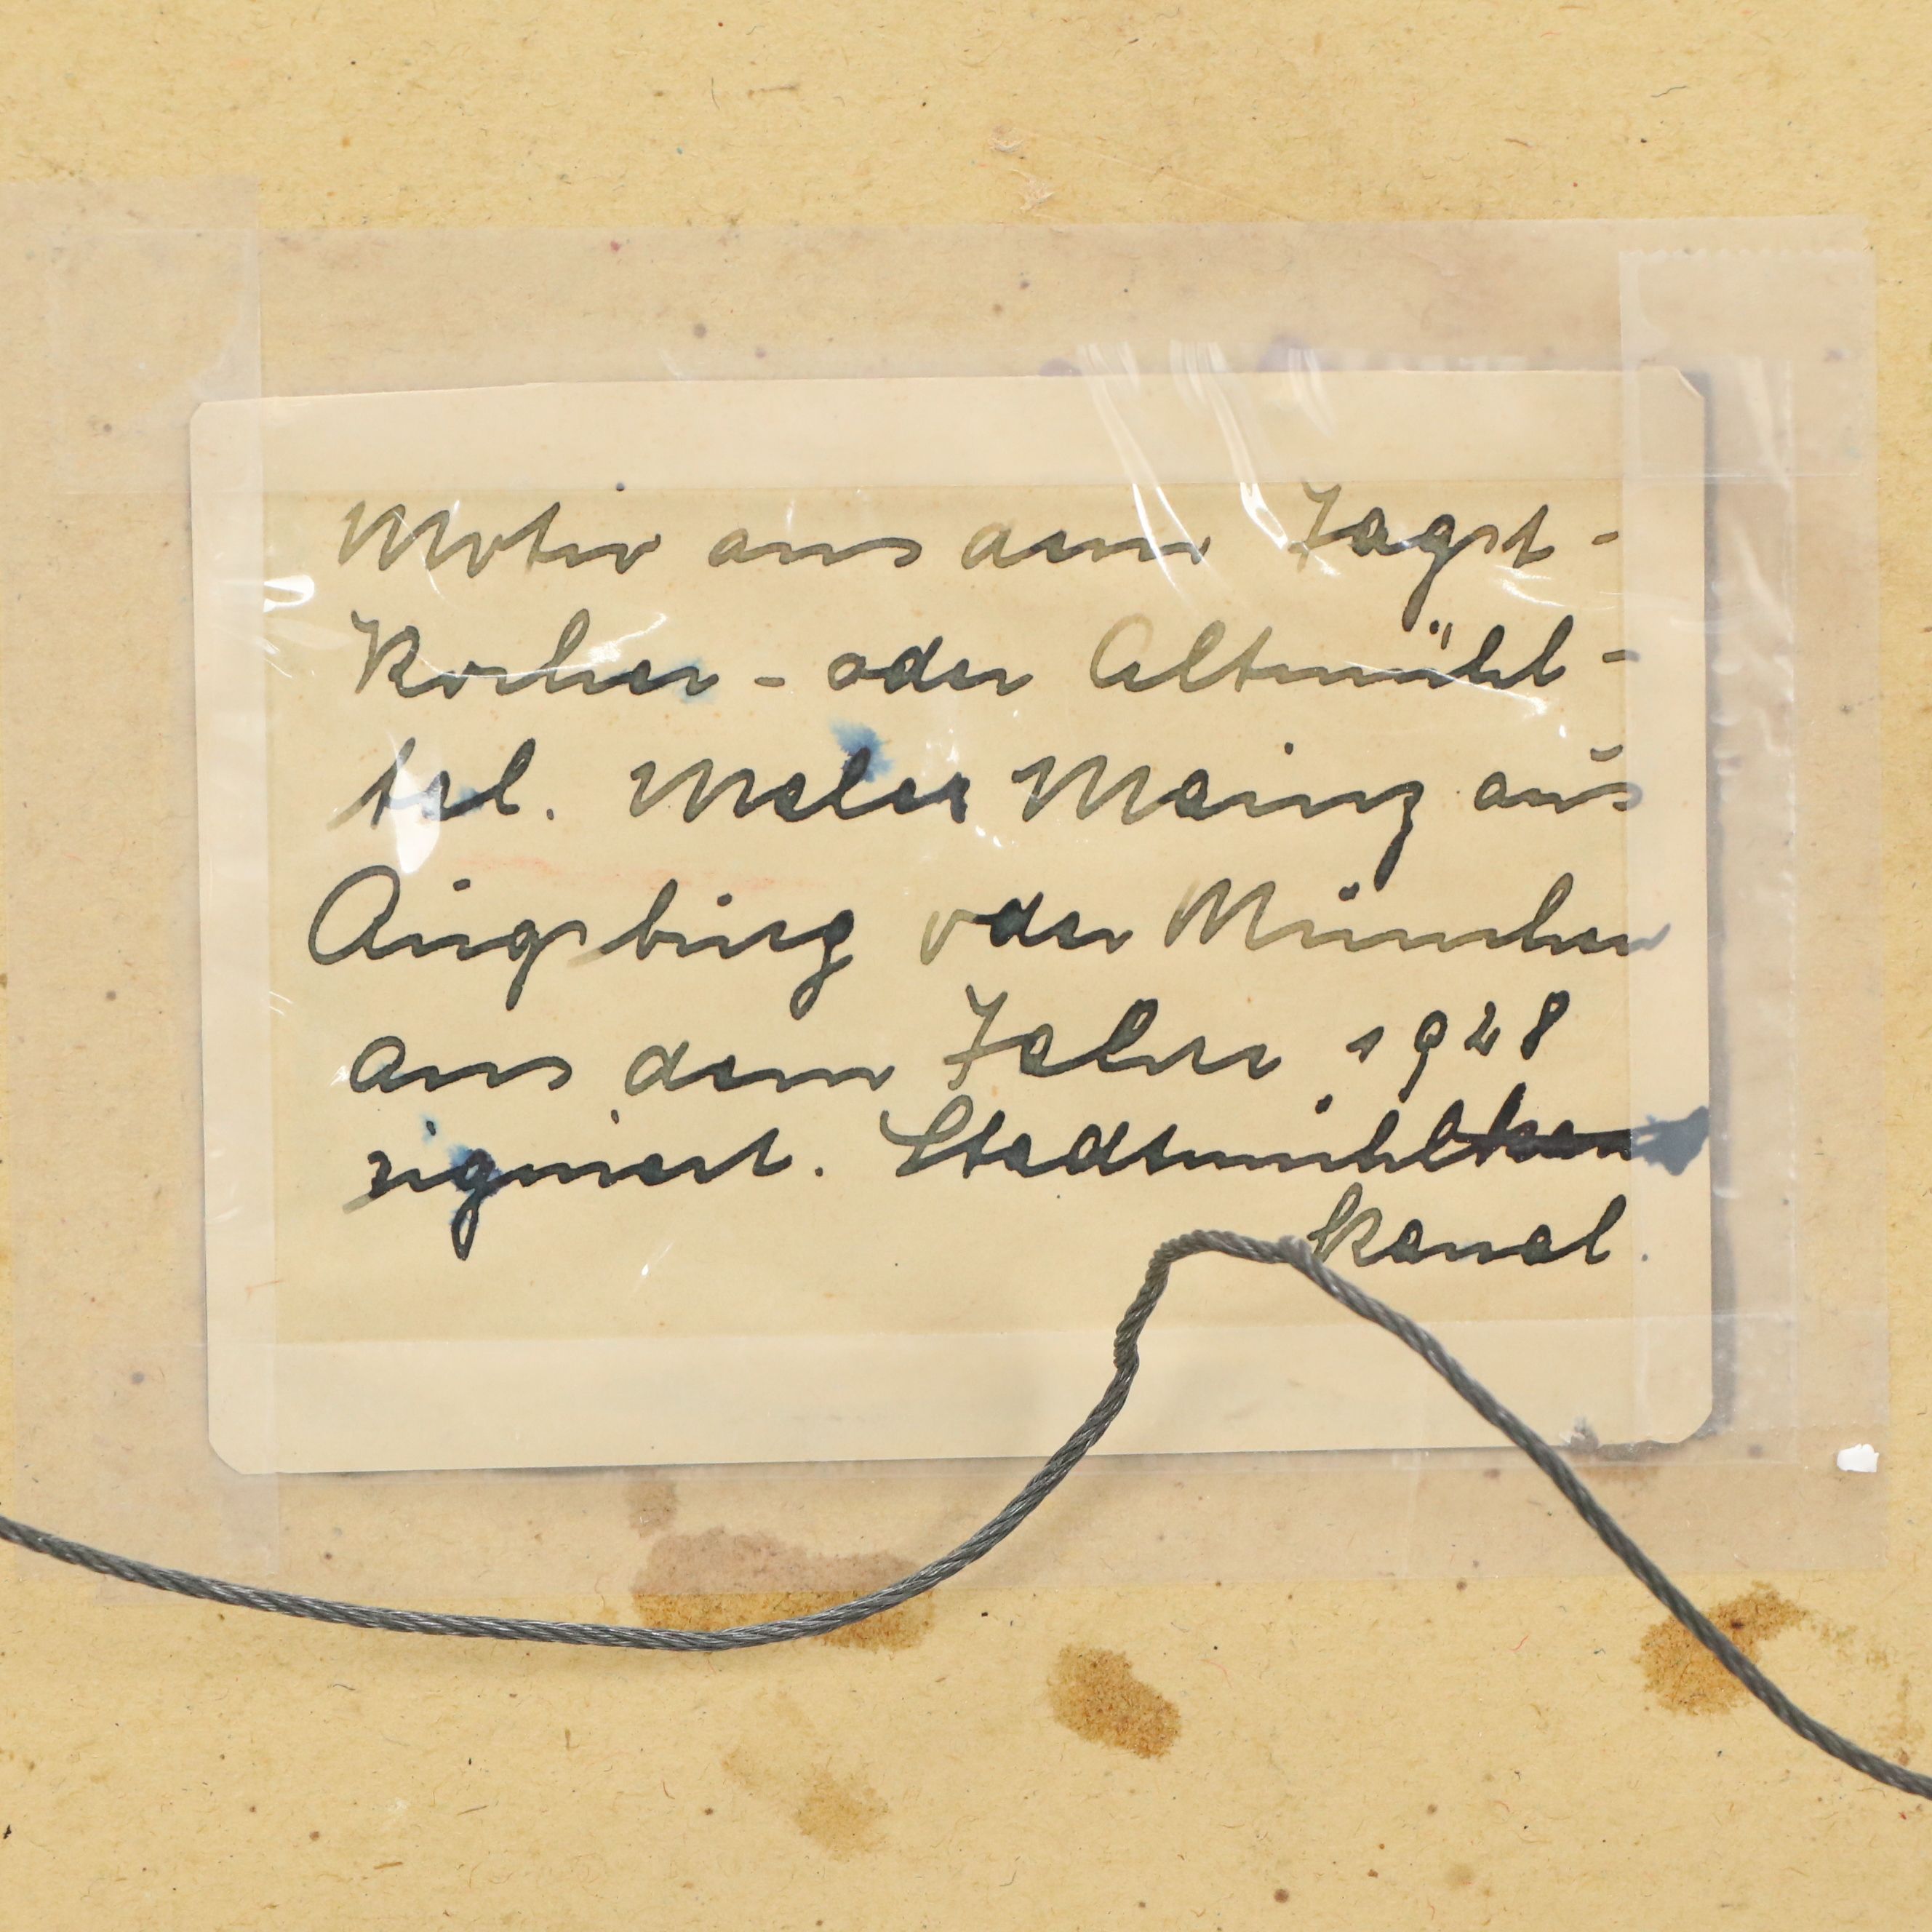 Motiv aus dem Jagst-
Kocher- oder Altmühl-
tal. Maler Mainz aus
Augsburg oder München
aus dem Jahre 1928
signiert. Stadtmühl
kanal.